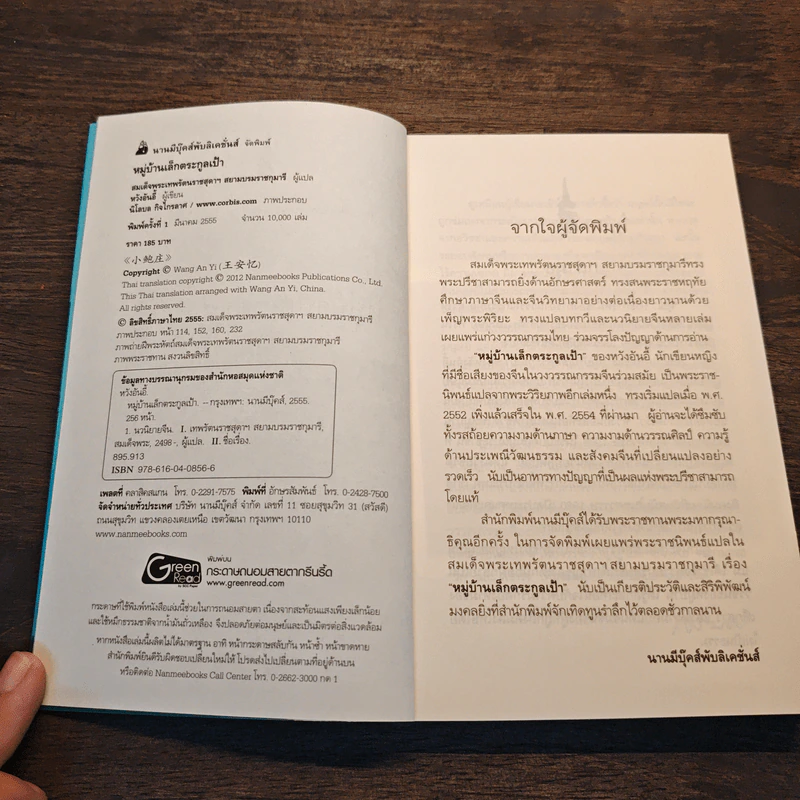 นานมีบุ๊คส์พับลิเคชั่นส์ จัดพิมพ์
หมู่บ้านเล็กตระกูลเป้า
สมเด็จพระเทพรัตนราชสุดาฯ สยามบรมราชกุมารี ผู้แปล
หวังอันอี้ ผู้เขียน
นิโลบล กิจไกรลาศ / www.corbis.com ภาพประกอบ
พิมพ์ครั้งที่ 1 มีนาคม 2555 จำนวน 10,000 เล่ม
ราคา 185 บาท
《小鲍庄》
Copyright © Wang An Yi (王安忆)
Thai translation copyright © 2012 Nanmeebooks Publications Co., Ltd.
This Thai translation arranged with Wang An Yi, China.
All rights reserved.
© ลิขสิทธิ์ภาษาไทย 2555: สมเด็จพระเทพรัตนราชสุดาฯ สยามบรมราชกุมารี
ภาพประกอบ หน้า 114, 152, 160, 232
ภาพถ่ายฝีพระหัตถ์สมเด็จพระเทพรัตนราชสุดาฯ สยามบรมราชกุมารี
ภาพพระราชทาน สงวนลิขสิทธิ์
ข้อมูลทางบรรณานุกรมของสำนักหอสมุดแห่งชาติ
หวังอันอี้.
หมู่บ้านเล็กตระกูลเป้า. -- กรุงเทพฯ: นานมีบุ๊คส์, 2555.
256 หน้า.
1. นวนิยายจีน. I. เทพรัตนราชสุดาฯ สยามบรมราชกุมารี,
สมเด็จพระ, 2498-, ผู้แปล. II. ชื่อเรื่อง.
895.913
ISBN 978-616-04-0856-6
เพลตที่ คลาสิคสแกน โทร. 0-2291-7575 พิมพ์ที่ อักษรสัมพันธ์ โทร. 0-2428-7500
จัดจำหน่ายทั่วประเทศ บริษัท นานมีบุ๊คส์ จำกัด เลขที่ 11 ซอยสุขุมวิท 31 (สวัสดี)
ถนนสุขุมวิท แขวงคลองเตยเหนือ เขตวัฒนา กรุงเทพฯ 10110
www.nanmeebooks.com
Green Read
พิมพ์บน
กระดาษถนอมสายตากรีนรี้ด
www.greenread.com
กระดาษที่ใช้พิมพ์หนังสือเล่มนี้ช่วยในการถนอมสายตา เนื่องจากสะท้อนแสงเพียงเล็กน้อย
และใช้หมึกธรรมชาติจากน้ำมันถั่วเหลือง จึงปลอดภัยต่อมนุษย์และเป็นมิตรต่อสิ่งแวดล้อม
หากหนังสือเล่มนี้ผลิตไม่ได้มาตรฐาน อาทิ หน้ากระดาษสลับกัน หน้าซ้ำ หน้าขาดหาย
สำนักพิมพ์ยินดีรับผิดชอบเปลี่ยนใหม่ให้ โปรดส่งไปเปลี่ยนตามที่อยู่ด้านบน
หรือติดต่อ Nanmeebooks Call Center โทร. 0-2662-3000 กด 1
จากใจผู้จัดพิมพ์
สมเด็จพระเทพรัตนราชสุดาฯ สยามบรมราชกุมารีทรง
พระปรีชาสามารถยิ่งด้านอักษรศาสตร์ ทรงสนพระราชหฤทัย
ศึกษาภาษาจีนและจีนวิทยามาอย่างต่อเนื่องยาวนานด้วย
เพ็ญพระพิริยะ ทรงแปลบทกวีและนวนิยายจีนหลายเล่ม
เผยแพร่แก่วงวรรณกรรมไทย ร่วมจรรโลงปัญญาด้านการอ่าน
"หมู่บ้านเล็กตระกูลเป้า" ของหวังอันอี้ นักเขียนหญิง
ที่มีชื่อเสียงของจีนในวงวรรณกรรมจีนร่วมสมัย เป็นพระราช-
นิพนธ์แปลจากพระวิริยภาพอีกเล่มหนึ่ง ทรงเริ่มแปลเมื่อ พ.ศ.
2552 เพิ่งแล้วเสร็จใน พ.ศ. 2554 ที่ผ่านมา ผู้อ่านจะได้ซึมซับ
ทั้งรสถ้อยความงามด้านภาษา ความงามด้านวรรณศิลป์ ความรู้
ด้านประเพณีวัฒนธรรม และสังคมจีนที่เปลี่ยนแปลงอย่าง
รวดเร็ว นับเป็นอาหารทางปัญญาที่เป็นผลแห่งพระปรีชาสามารถ
โดยแท้
สำนักพิมพ์นานมีบุ๊คส์ได้รับพระราชทานพระมหากรุณา-
ธิคุณอีกครั้ง ในการจัดพิมพ์เผยแพร่พระราชนิพนธ์แปลใน
สมเด็จพระเทพรัตนราชสุดาฯ สยามบรมราชกุมารี เรื่อง
"หมู่บ้านเล็กตระกูลเป้า" นับเป็นเกียรติประวัติและสิริพิพัฒน์
มงคลยิ่งที่สำนักพิมพ์จักเทิดทูนรำลึกไว้ตลอดชั่วกาลนาน
นานมีบุ๊คส์พับลิเคชั่นส์